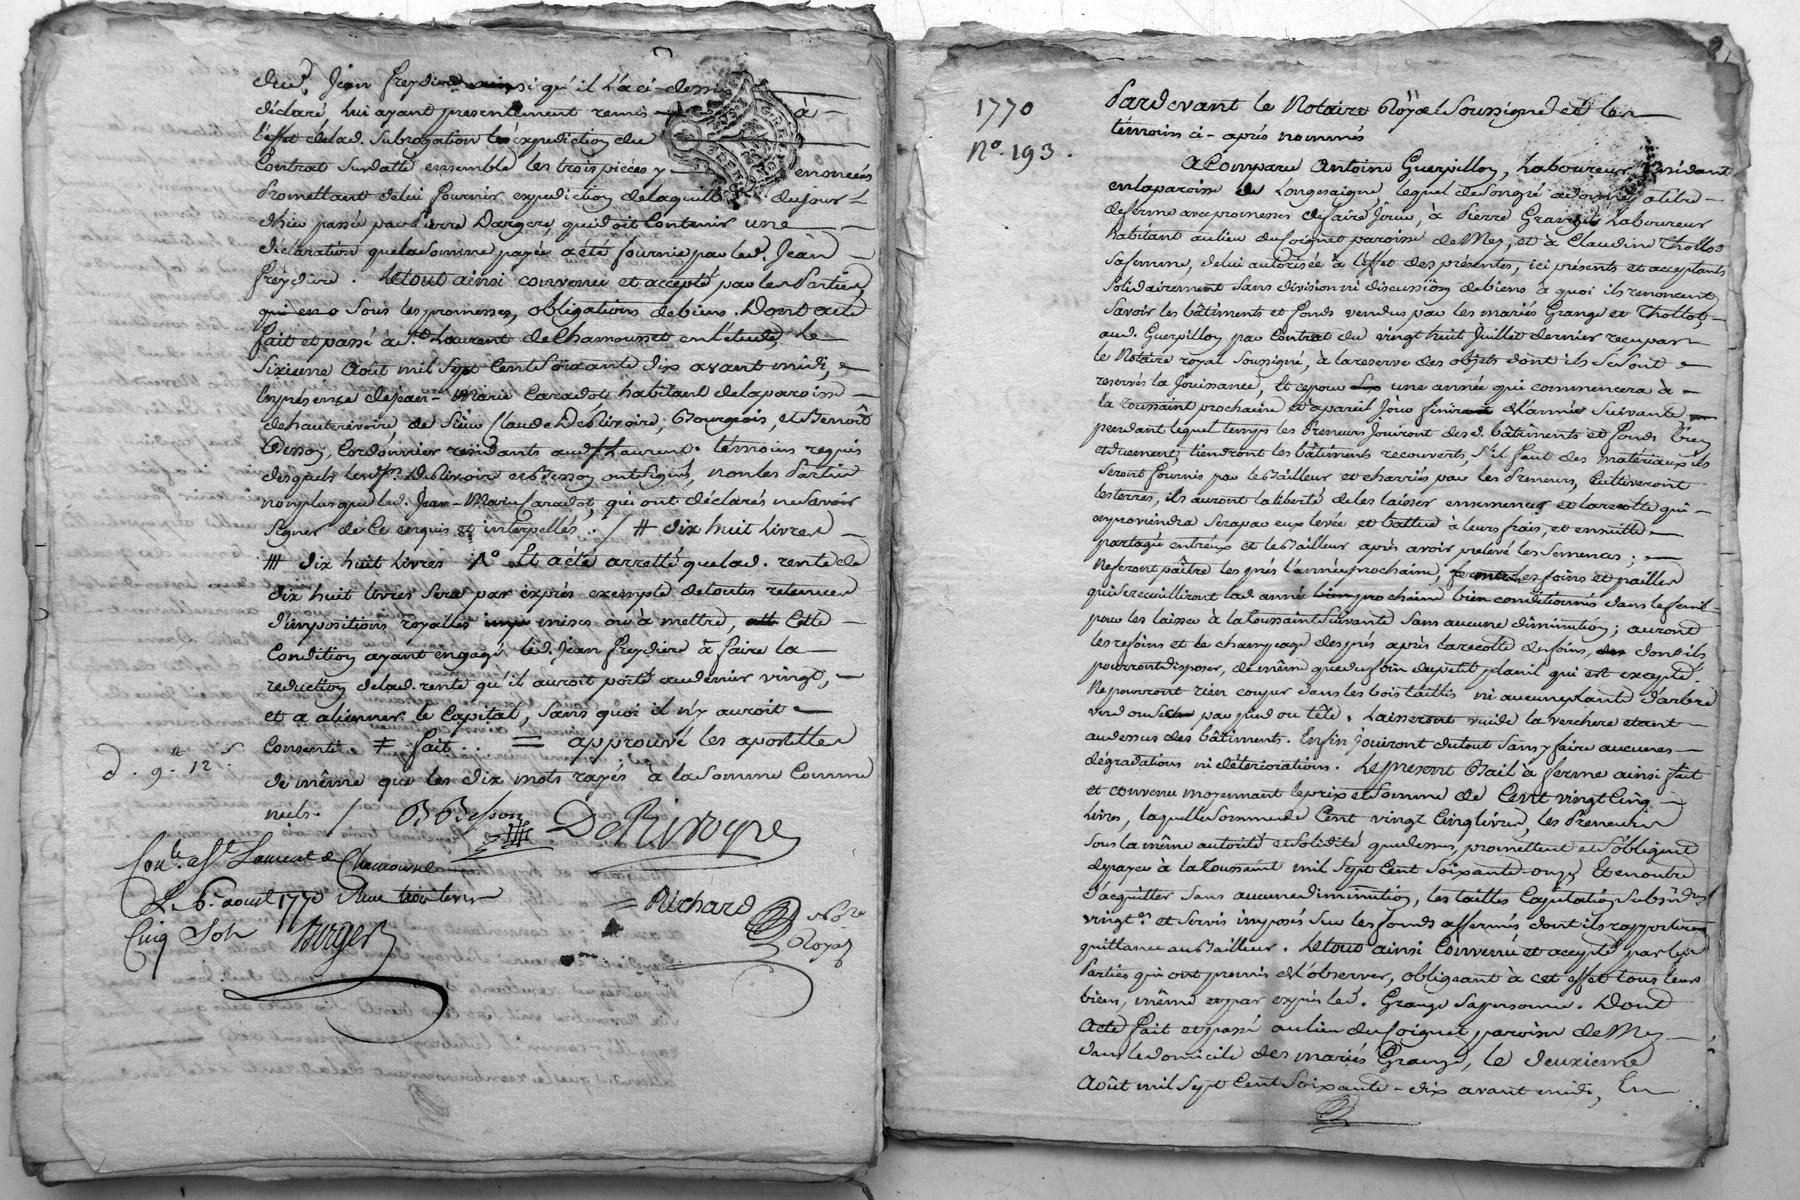 dud. Jean Freydiere ainsi qu'il l'a ci-dessus
déclaré, lui ayant presentement remis à
l'effet de lad. Subrogation les expedition du
Contrat Susdatté ensemble les trois pièces y enoncées
Promettant de lui fournir expedition de la quitt. du jour
d'hui passée par Pierre Dargere, qui doit Contenir une
déclaration que la Somme payée a été fournie par led. Jean
Freydiere. Le tout ainsi convenu et accepté par les Parties
qui en o Sous les promesses, obligations de biens. Dont acte
fait et passé à St. Laurent de Chamousset en l'étude, Le
Sixieme Août mil Sept Cent Soixante dix avant midi,
En présence de Jean-Marie Caradot habitant de la paroisse
de hauterivoire, de Sieur Claude DeRivoire, Bourgeois, et Benoît
Besson, Cordonnier résidants aud. St. Laurent. témoins requis
desquels lesd. Srs. DeRivoire et Besson ont Signé, non les Parties
non plus que led. Jean-Marie Caradot, qui ont déclarés ne Savoir
Signer de Ce enquis et interpellés. / # dix huit Livres
# dix huit Livres N° Et a été arretté que lad. rente de
dix huit livres Sera par exprès exempte de toutes retenues
d'impositions royalles mises ou à mettre, Cette
Condition ayant engagé led. Jean Freydiere à faire la
reduction de lad. rente qu'il auroit porté au denier vingt,
et a alienner le Capital, Sans quoi il n'y auroit
Consenti. ≠ fait. = approuvé les apostilles
d. 9 12
de même que les dix mots rayés à la Somme Comme
nuls. / B Besson DeRivoyre
Con.le à St. Laurent de Chamousset
Le 6. aoust 1770 Reçu trois livres
Cinq Sols Burger
Richard Nore Royal
1770
N°. 193.
Pardevant le Notaire Royal Soussigné et les
témoins ci-après nommés
A Comparu Antoine Guerpillon, Laboureur résidant
en la paroisse de Longesaigne, lequel de Son gré a donné, à titre
de ferme avec promesses de faire Jouir, à Pierre Grange Laboureur
habitant au lieu du Soignet paroisse de Mes, et à Claudine Thollot
Sa femme, de lui autorisée à l'effet des présentes, ici présents et acceptants
Solidairement Sans division ni discussion de biens à quoi ils renoncent,
Savoir les bâtiments et fonds vendus par les mariés Grange et Thollot,
aud. Guerpillon par Contrat du vingt huit Juillet dernier reçu par
le Notaire royal Soussigné, à la reserve des objets dont ils Se Sont
reservés la Jouissance, Et ce pour une année qui commencera à
la toussaint prochaine et à pareil Jour finira de l'année Suivante
pendant lequel temps les Preneurs Jouiront desd. bâtiments et fonds bien
et duement, tiendront les bâtiments recouverts, S'il faut des matériaux ils
Seront fournis par le Bailleur et charriés par les Preneurs, Cultiveront
les terres, ils auront la liberté de les laisser ensemencés et la recolte qui
en proviendra Sera par eux levée et battue à leurs frais, et ensuitte
partagée entr'eux et le Bailleur après avoir prelevé les Semences;
Ne feront paître les prés l'année prochaine, les foins et pailles
qui Se recuilliront lad. année bien conditionnés dans le fenil
pour les laisser à la toussaint Suivante Sans aucune diminution; auront
les refoins et le champeage des prés après la recolte des foins, dont ils
pourront disposer, de même que du foin du petit planil qui est excepté.
Ne pourront rien couper dans les bois taillis ni aucune plante d'arbre
verd ou Sec par pied ou tête. Laisseront vuide la verchere étant
au dessus des bâtiments. Enfin jouiront du tout Sans y faire aucunes
dégradations ni détériorations. Le present Bail à ferme ainsi fait
et convenu moyennant le prix et Somme de Cent vingt Cinq
Livres, laquelle Somme de Cent vingt Cinq livres, les Preneurs
Sous la même autorité et Solidité que dessus, promettent et S'obligent
de payer à la toussaint mil Sept Cent Soixante-onze Et en outre
d'acquitter Sans aucune diminution, les tailles Capitation Subsides
vingt.e et Servis imposés Sur les fonds affermés dont ils rapporteront
quittance au Bailleur. Le tout ainsi Convenu et accepté par les
Parties qui ont promis de l'observer, obligeant à cet effet tous leurs
biens, même et par exprès led. Grange Sa personne. Dont
acte fait et passé au lieu du Soignet paroisse de Mes
dans le domicile des mariés Grange, le deuxieme
Août mil Sept Cent Soixante-dix avant midi, En